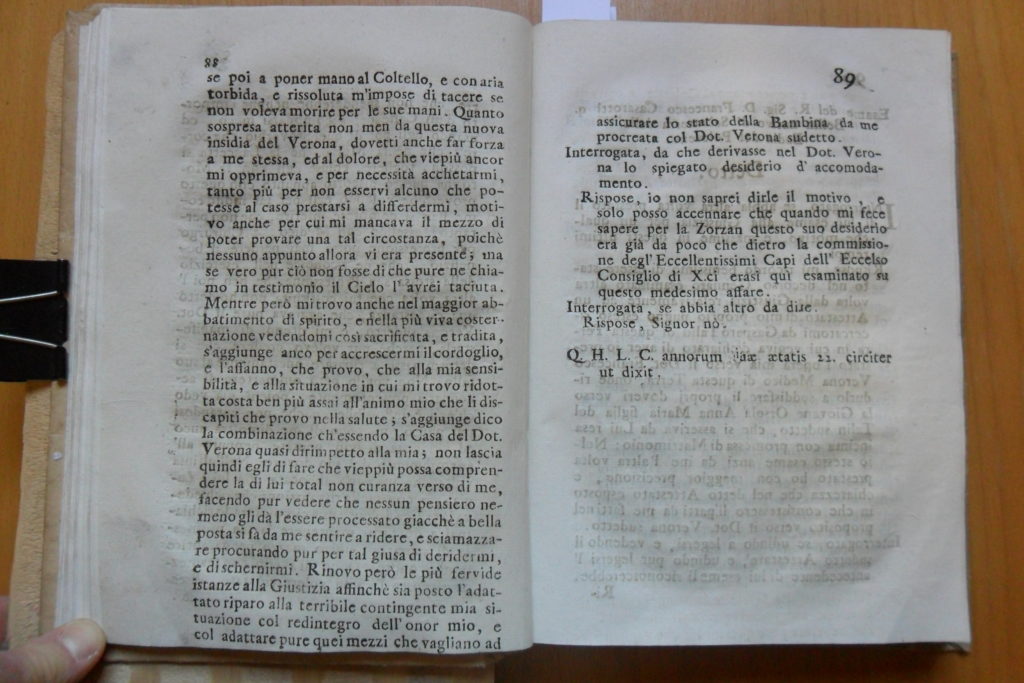 88
se poi a poner mano al Coltello, e con aria
torbida, e rissoluta m'impose di tacere se
non voleva morire per le sue mani. Quanto
sospresa atterita non men da questa nuova
insidia del Verona, dovetti anche far forza
a me stessa, ed al dolore, che viepiù ancor
mi opprimeva, e per necessità acchetarmi,
tanto più per non esservi alcuno che po-
tesse al caso prestarsi a differdermi, moti-
vo anche per cui mi mancava il mezzo di
poter provare una tal circostanza, poichè
nessuno appunto allora vi era presente; ma
se vero pur ciò non fosse di che pure ne chia-
mo in testimonio il Cielo l'avrei taciuta.
Mentre però mi trovo anche nel maggior ab-
batimento di spirito, e nella più viva coster-
nazione vedendomi così sacrificata, e tradita,
s'aggiunge anco per accrescermi il cordoglio,
e l'affanno, che provo, che alla mia sensi-
bilità, e alla situazione in cui mi trovo ridot-
ta costa ben più assai all'animo mio che li dis-
capiti che provo nella salute; s'aggiunge dico
la combinazione ch'essendo la Casa del Dot.
Verona quasi dirimpetto alla mia; non lascia
quindi egli di fare che vieppiù possa compren-
dere la di lui total non curanza verso di me,
facendo pur vedere che nessun pensiero ne-
meno gli dà l'essere processato giacchè a bella
posta si fà da me sentire a ridere, e sciamazza-
re procurando pur per tal giusa di deridermi,
e di schernirmi. Rinovo però le più fervide
istanze alla Giustizia affinchè sia posto l'adat-
tato riparo alla terribile contingente mia si-
tuazione col redintegro dell'onor mio, e
col adattare pure quei mezzi che vagliano ad
89
assicurare lo stato della Bambina da me
procreata col Dot. Verona sudetto.
Interrogata, da che derivasse nel Dot. Vero-
na lo spiegato desiderio d'accomoda-
mento.
Rispose, io non saprei dirle il motivo, e
solo posso accennare che quando mi fece
sapere per la Zorzan questo suo desiderio
era già da poco che dietro la commissio-
ne degl'Eccellentissimi Capi dell'Eccelso
Consiglio di X.ci erasi quì esaminato su
questo medesimo affare.
Interrogata, se abbia altro da dire.
Rispose, Signor nò.
Q. H. L. C. annorum suæ ætatis 22. circiter
ut dixit.